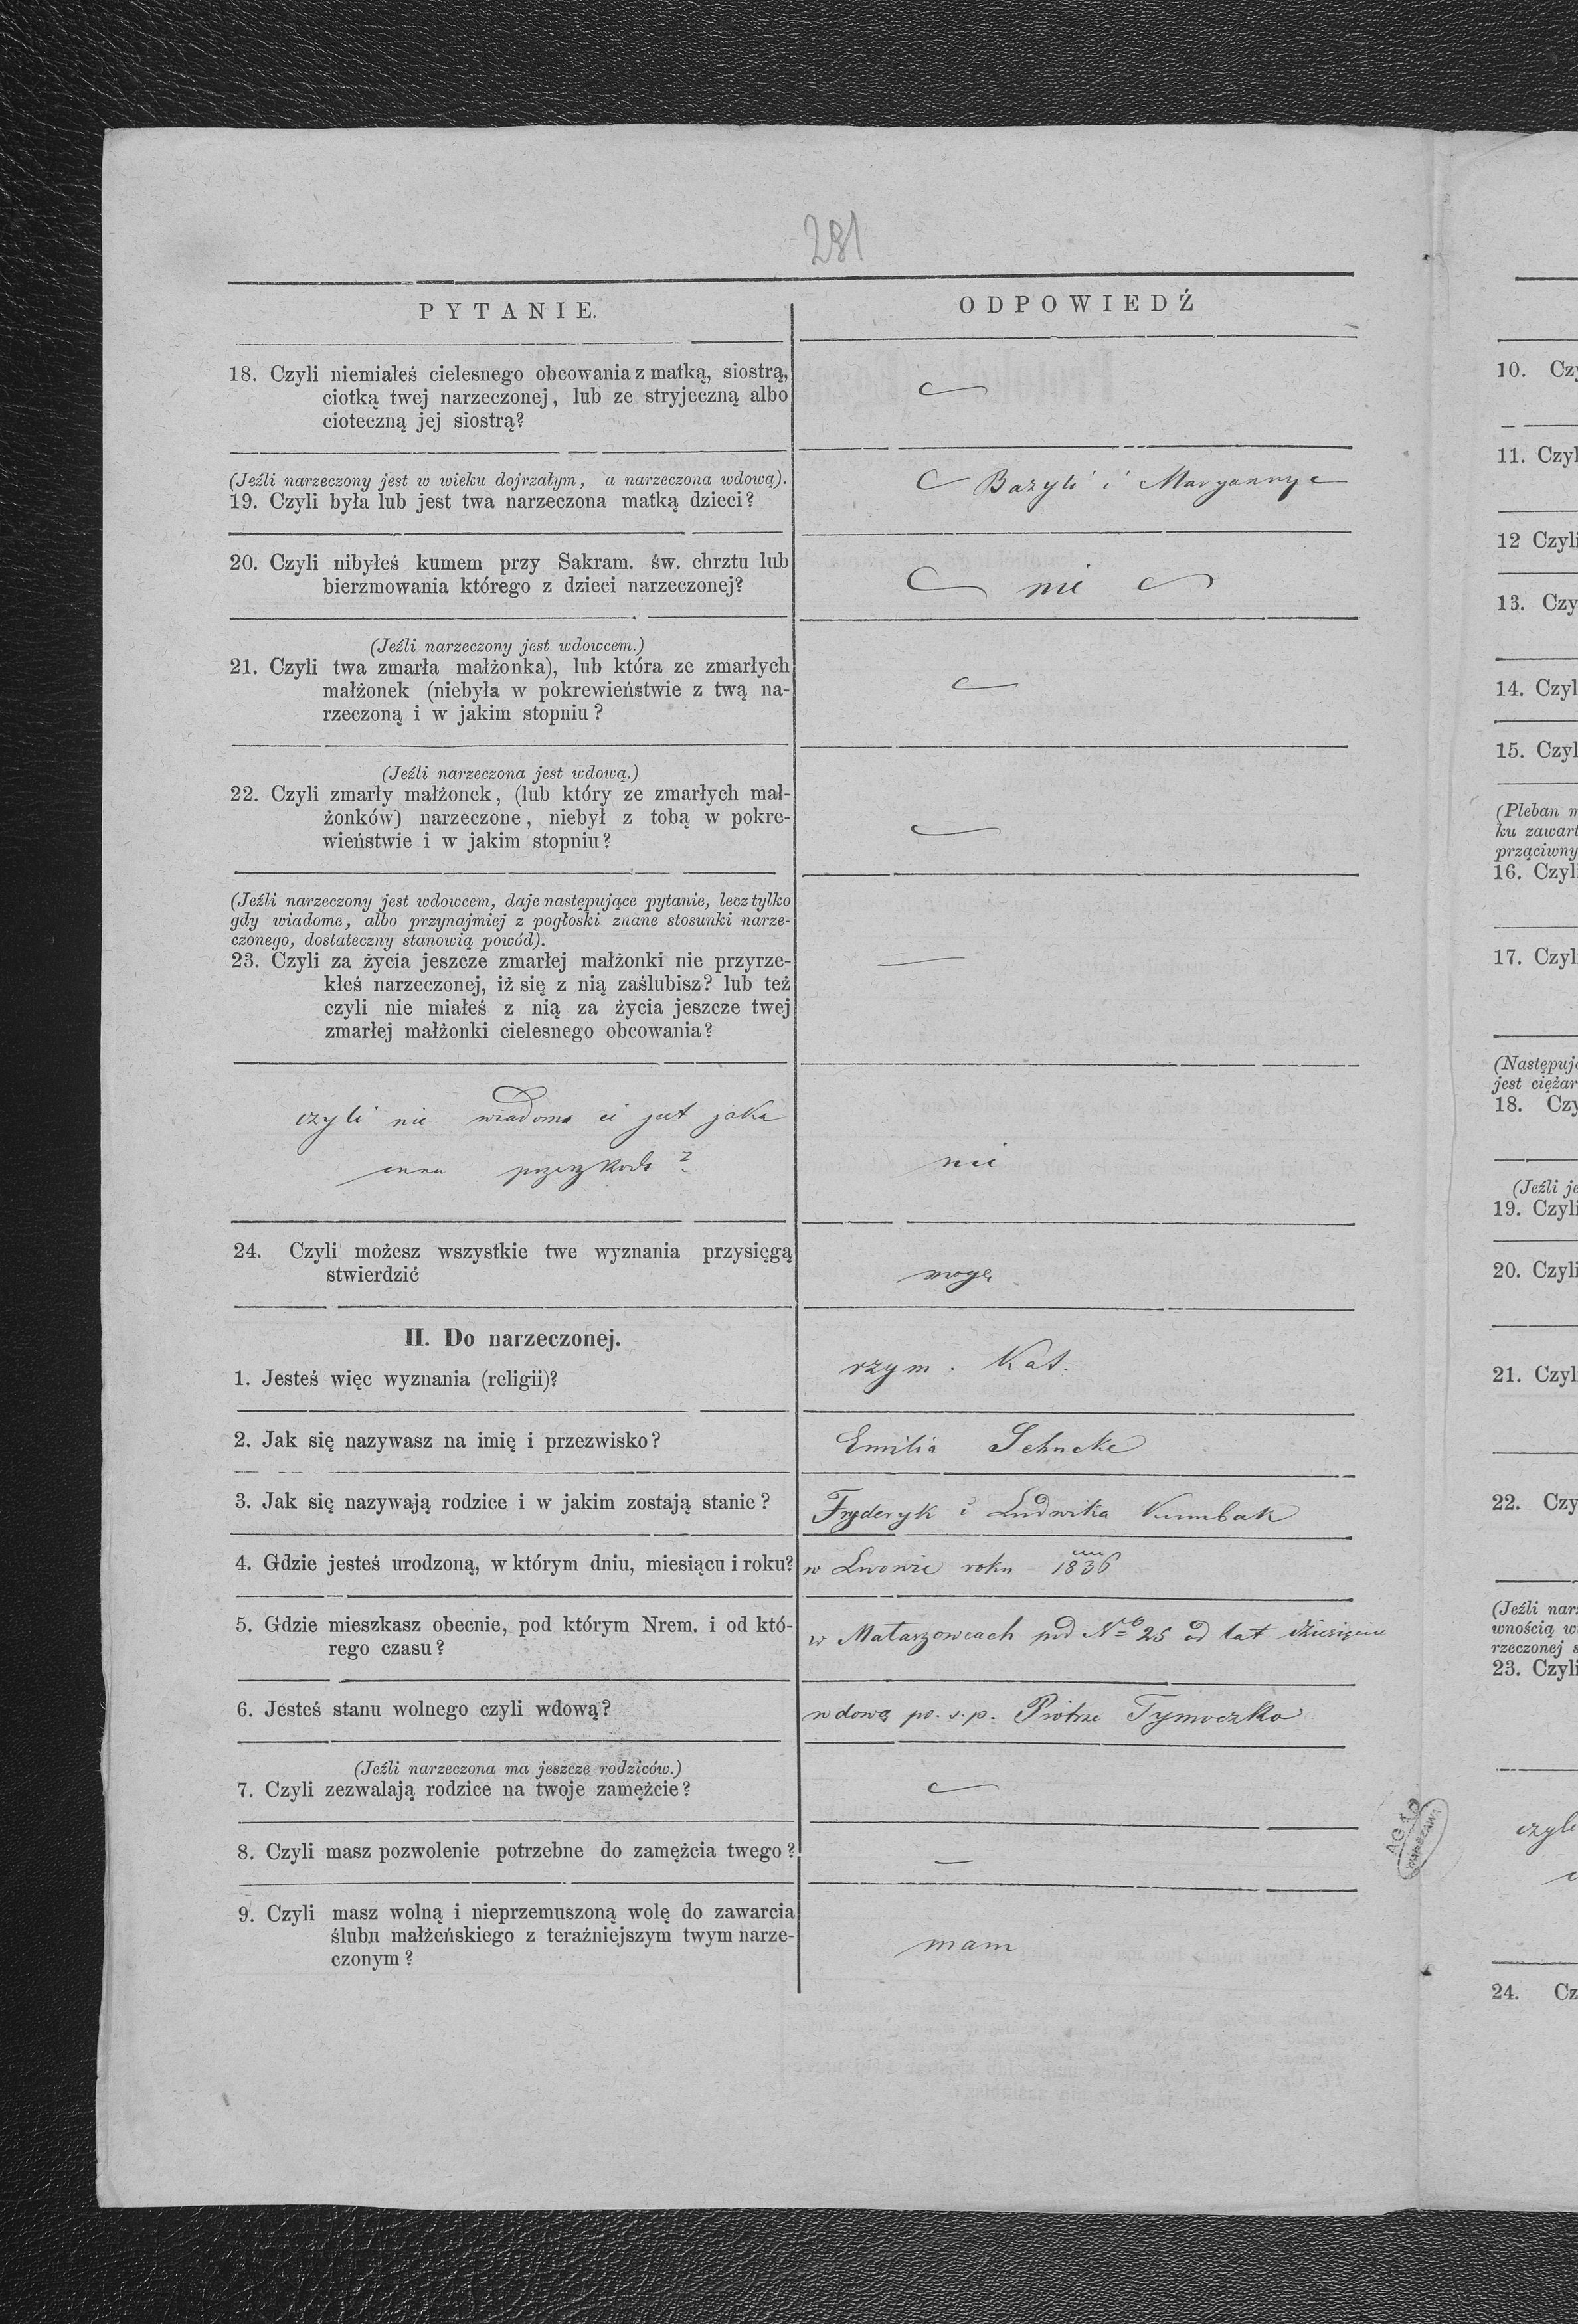 281
PYTANIE.
ODPOWIEDŹ
18. Czyli niemiałeś cielesnego obcowania z matką, siostrą,
ciotką twej narzeczonej, lub ze stryjeczną albo
cioteczną jej siostrą?
(Jeźli narzeczony jest w wieku dojrzałym, a narzeczona wdową).
19. Czyli była lub jest twa narzeczona matką dzieci?
Bazyli i Maryanny
20. Czyli nibyłeś kumem przy Sakram. św. chrztu lub
bierzmowania którego z dzieci narzeczonej?
nie
(Jeźli narzeczony jest wdowcem.)
21. Czyli twa zmarła małżonka), lub która ze zmarłych
małżonek (niebyła w pokrewieństwie z twą na-
rzeczoną i w jakim stopniu?
(Jeźli narzeczona jest wdową.)
22. Czyli zmarły małżonek, (lub który ze zmarłych mał-
żonków) narzeczone, niebył z tobą w pokre-
wieństwie i w jakim stopniu?
(Jeźli narzeczony jest wdowcem, daje następujące pytanie, lecz tylko
gdy wiadome, albo przynajmiej z pogłoski znane stosunki narze-
czonego, dostateczny stanowią powód).
23. Czyli za życia jeszcze zmarłej małżonki nie przyrze-
kłeś narzeczonej, iż się z nią zaślubisz? lub też
czyli nie miałeś z nią za życia jeszcze twej
zmarłej małżonki cielesnego obcowania?
czyli nie wiadoma ci jest jaka
inna przeszkoda?
nie
24. Czyli możesz wszystkie twe wyznania przysięgą
stwierdzić
mogę
II. Do narzeczonej.
1. Jesteś więc wyznania (religii)?
rzym. Kat.
2. Jak się nazywasz na imię i przezwisko?
Emilia
3. Jak się nazywają rodzice i w jakim zostają stanie?
Fryderyk i Ludwika
4. Gdzie jesteś urodzoną, w którym dniu, miesiącu i roku?
w Lwowie roku 1836
5. Gdzie mieszkasz obecnie, pod którym Nrem. i od któ-
rego czasu?
w Matarzowcach pod Nro 25 od lat dziesięciu
6. Jesteś stanu wolnego czyli wdową?
wdową po ś.p. Piotrze Tymoczko
(Jeźli narzeczona ma jeszcze rodziców.)
7. Czyli zezwalają rodzice na twoje zamężcie?
8. Czyli masz pozwolenie potrzebne do zamężcia twego?
9. Czyli masz wolną i nieprzemuszoną wolę do zawarcia
ślubu małżeńskiego z teraźniejszym twym narze-
czonym?
mam
AGAD
WARSZAWA
10. Czy
11. Czyl
12 Czyli
13. Czy
14. Czyl
15. Czyl
(Pleban n
ku zawart
prząciwny
16. Czyl
17. Czyl
(Następują
jest ciężar
18. Czy
(Jeźli je
19. Czyli
20. Czyli
21. Czyl
22. Czy
(Jeźli nar
wnością w
rzeczonej s
23. Czyli
czyli
24. Cz